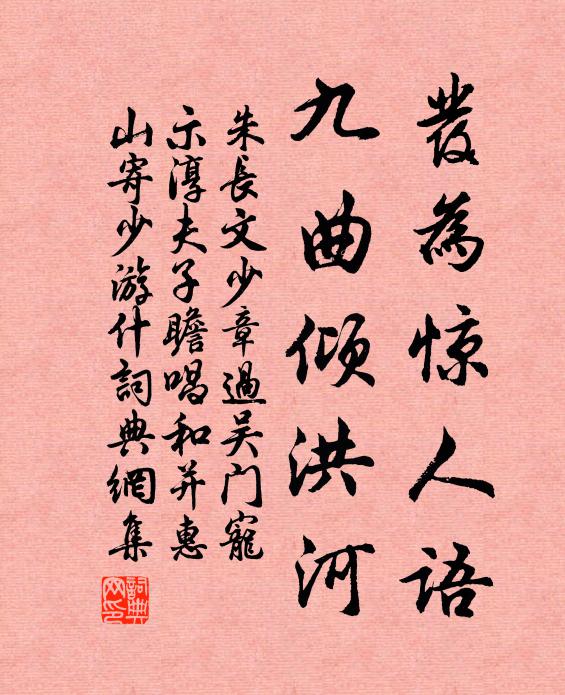 發為惊人語
九曲倾洪河
朱長文少章過吴门寵
示淳夫子瞻唱和并惠
山寄少游什詞典網集
詞典
网印